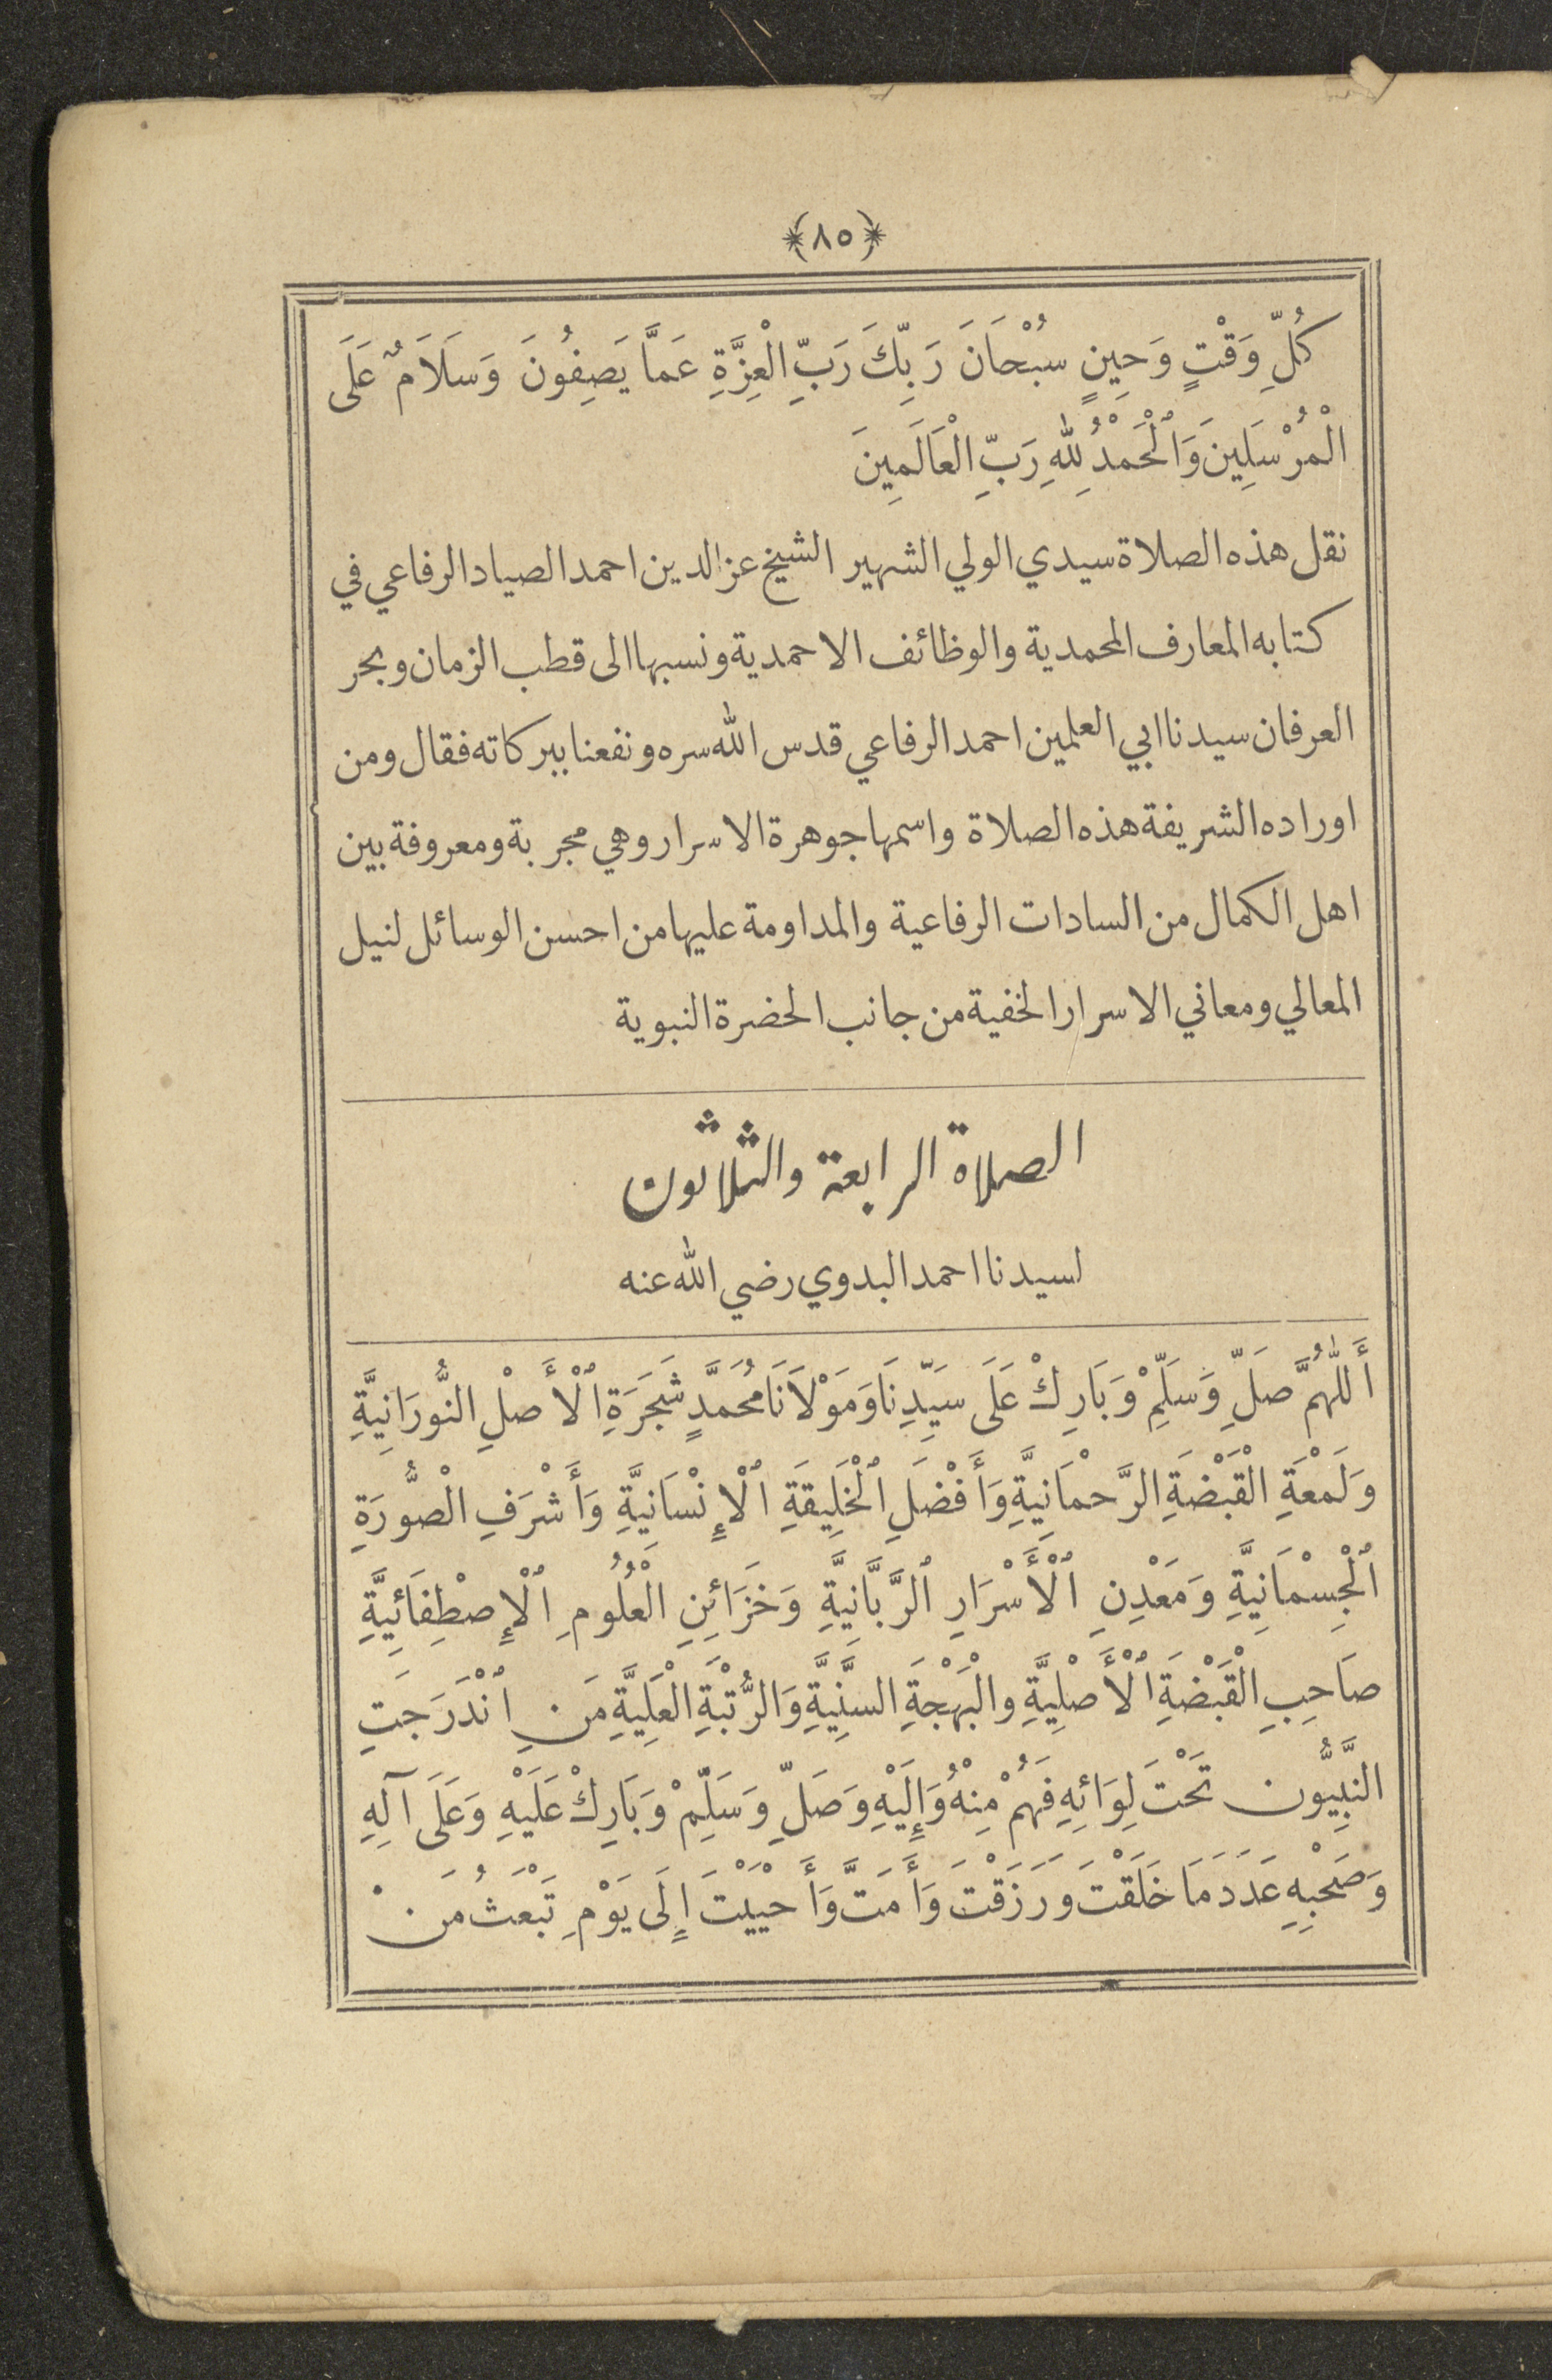 ﴿٨٥﴾
كُلِّ وَقْتٍ وَحِينٍ سُبْحَانَ رَبِّكَ رَبِّ الْعِزَّةِ عَمَّا يَصِفُونَ وَسَلَامٌ عَلَى
الْمُرْسَلِينَ وَٱلْحَمْدُ لِلّٰهِ رَبِّ الْعَالَمِينَ
نقل هذه الصلاة سيدي الولي الشهير الشيخ عز الدين احمد الصياد الرفاعي في
كتابه المعارف المحمدية والوظائف الاحمدية ونسبها الى قطب الزمان وبحر
العرفان سيدنا ابي العلمين احمد الرفاعي قدس الله سره ونفعنا ببركاته فقال ومن
اوراده الشريفة هذه الصلاة واسمها جوهرة الاسرار وهي مجربة ومعروفة بين
اهل الكمال من السادات الرفاعية والمداومة عليها من احسن الوسائل لنيل
المعالي ومعاني الاسرار الخفية من جانب الحضرة النبوية
الصلاة الرابعة والثلاثون
لسيدنا احمد البدوي رضي الله عنه
أَللّٰهُمَّ صَلِّ وَسَلِّمْ وَبَارِكْ عَلَى سَيِّدِنَا وَمَوْلَانَا مُحَمَّدٍ شَجَرَةِ ٱلْأَصْلِ النُّورَانِيَّةِ
وَلَمْعَةِ الْقَبْضَةِ الرَّحْمَانِيَّةِ وَأَفْضَلِ ٱلْخَلِيقَةِ ٱلْإِنْسَانِيَّةِ وَأَشْرَفِ الْصُّورَةِ
ٱلْجِسْمَانِيَّةِ وَمَعْدِنِ ٱلْأَسْرَارِ ٱلرَّبَّانِيَّةِ وَخَزَائِنِ الْعُلُومِ ٱلْإِصْطِفَائِيَّةِ
صَاحِبِ الْقَبْضَةِ ٱلْأَصْلِيَّةِ والْبَهْجَةِ السَّنِيَّةِ وَالرُّتْبَةِ الْعَلِيَّةِ مَنِ ٱنْدَرَجَتِ
النَّبِيُّون تَحْتَ لِوَائِهِ فَهُمْ مِنْهُ وَإِلَيْهِ وَصَلِّ وَسَلِّمْ وَبَارِكْ عَلَيْهِ وَعَلَى آلِهِ
وَصَحْبِهِ عَدَدَ مَا خَلَقْتَ وَرَزَقْتَ وَأَمَتَّ وَأَحْيَيْتَ إِلَى يَوْمِ تَبْعَثُ مَنْ